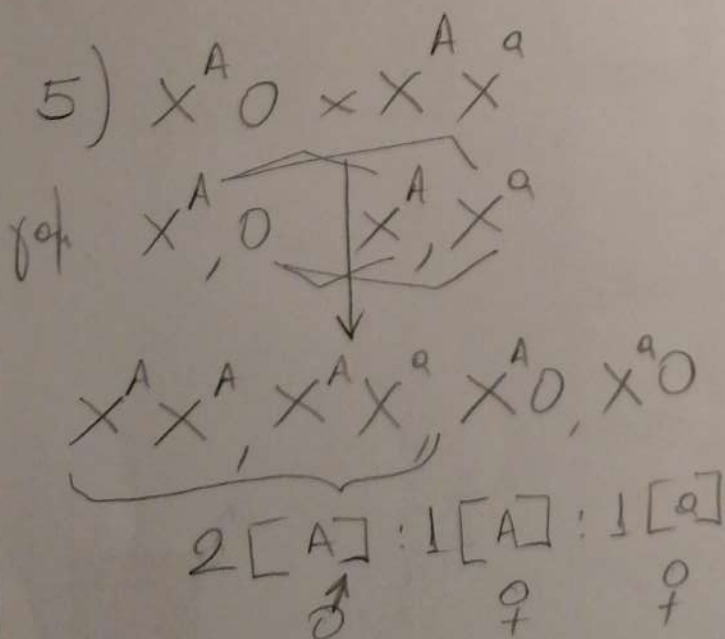 5) Xᴬ O × Xᴬ Xᵃ
Xᴬ, O Xᴬ, Xᵃ
Xᴬ Xᴬ, Xᴬ Xᵃ, Xᴬ O, Xᵃ O
2 [A] : 1 [A] : 1 [a]
♂ ♀ ♀